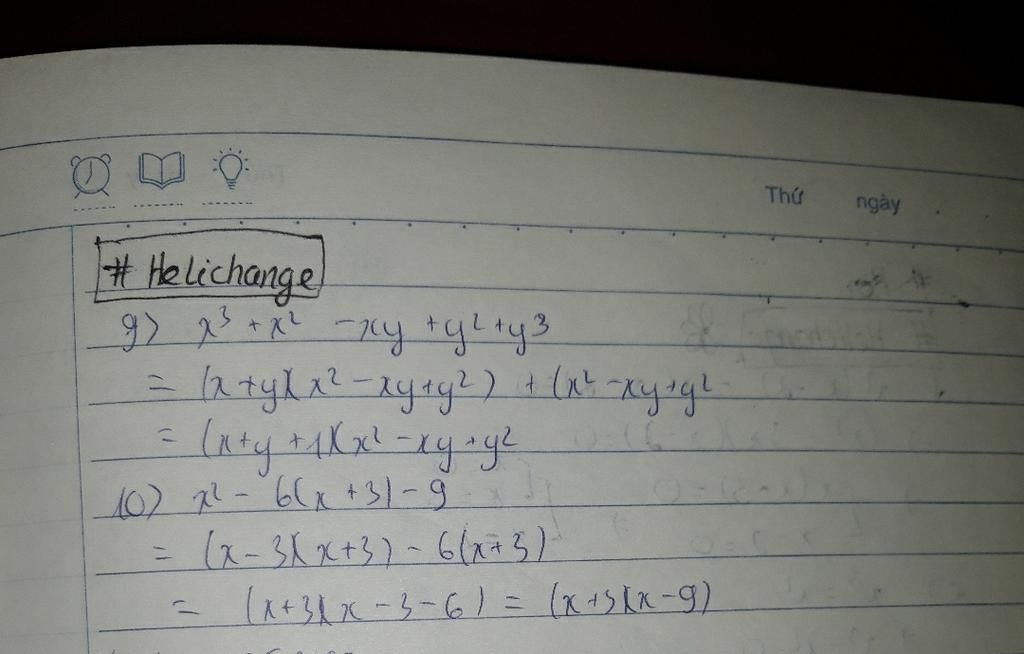 Thứ ngày
# Helichange
9) x³ + x² - xy + y² + y³
= (x+y)(x² - xy + y²) + (x² - xy + y²
= (x + y + 1)(x² - xy + y²
10) x² - 6(x + 3) - 9
= (x - 3)(x + 3) - 6(x + 3)
= (x+3)(x - 3 - 6) = (x+3)(x - 9)